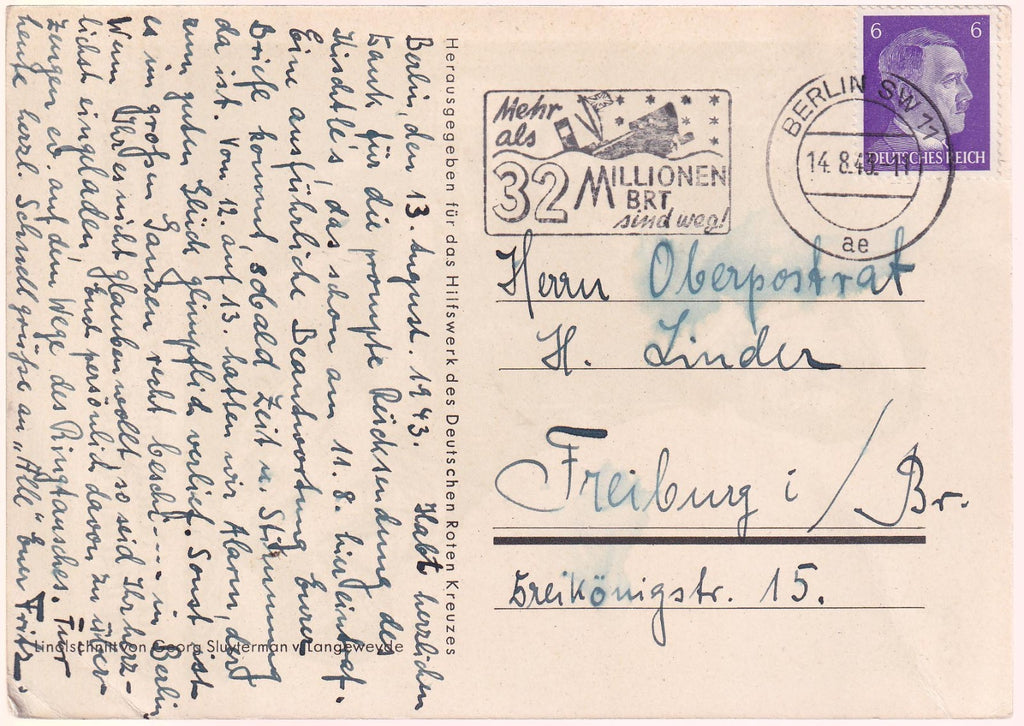 Berlin, den 13. August. 1943. Habt herzlichen
Dank für die prompte Rücksendung des
Kischtle's, das schon am 11.8. hier eintraf.
Eine ausführliche Beantwortung Eurer
Briefe kommt, sobald Zeit u. Stimmung
da ist. Vom 12. auf 13. hatten wir Alarm, der
zum guten Glück glimpflich verlief. Sonst ist
es im großen Ganzen recht besch.... in Berlin.
Wenn Ihr es nicht glauben wollt, so seid Ihr herz-
lichst eingeladen, Euch persönlich davon zu über-
zeugen ev. auf dem Wege des Ringtausches. Für
heute herzl. Schnellgrüße an „Alle" Euer Fritz.
Linolschnitt von Georg Sluyterman v. Langeweyde
Herausgegeben für das Hilfswerk des Deutschen Roten Kreuzes
Mehr
als
32 MILLIONEN
BRT
sind weg!
BERLIN SW 11
14. 8.43. 11
ae
6 6
DEUTSCHES REICH
Herrn Oberpostrat
H. Linder
Freiburg i/Br.
Dreikönigstr. 15.